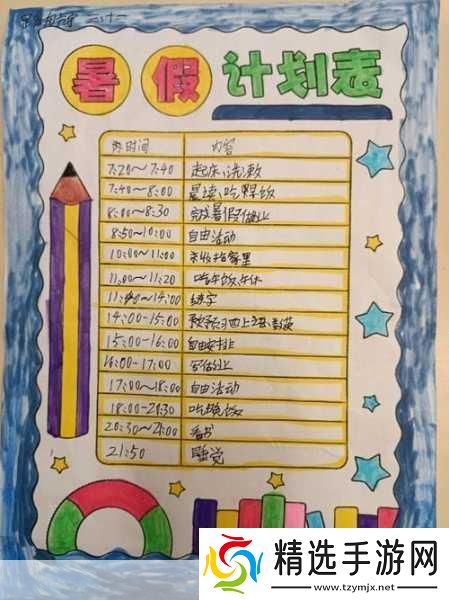 暑假计划表
时间 内容
7:20～7:40 起床、洗漱
7:40～8:00 晨读、吃早饭
8:00～8:30 完成暑假作业
8:50～10:00 自由活动
10:00～11:00
11:00～11:20 吃午饭、午休
11:40～14:00 练字
14:00-15:00 预习四上
15:00-16:00 自由安排
16:00-17:00 写作业
17:00～18:00 自由活动
18:00-20:30 吃晚饭
20:30～21:00 看书
21:50 睡觉
精选手游网
www.tzymjx.net